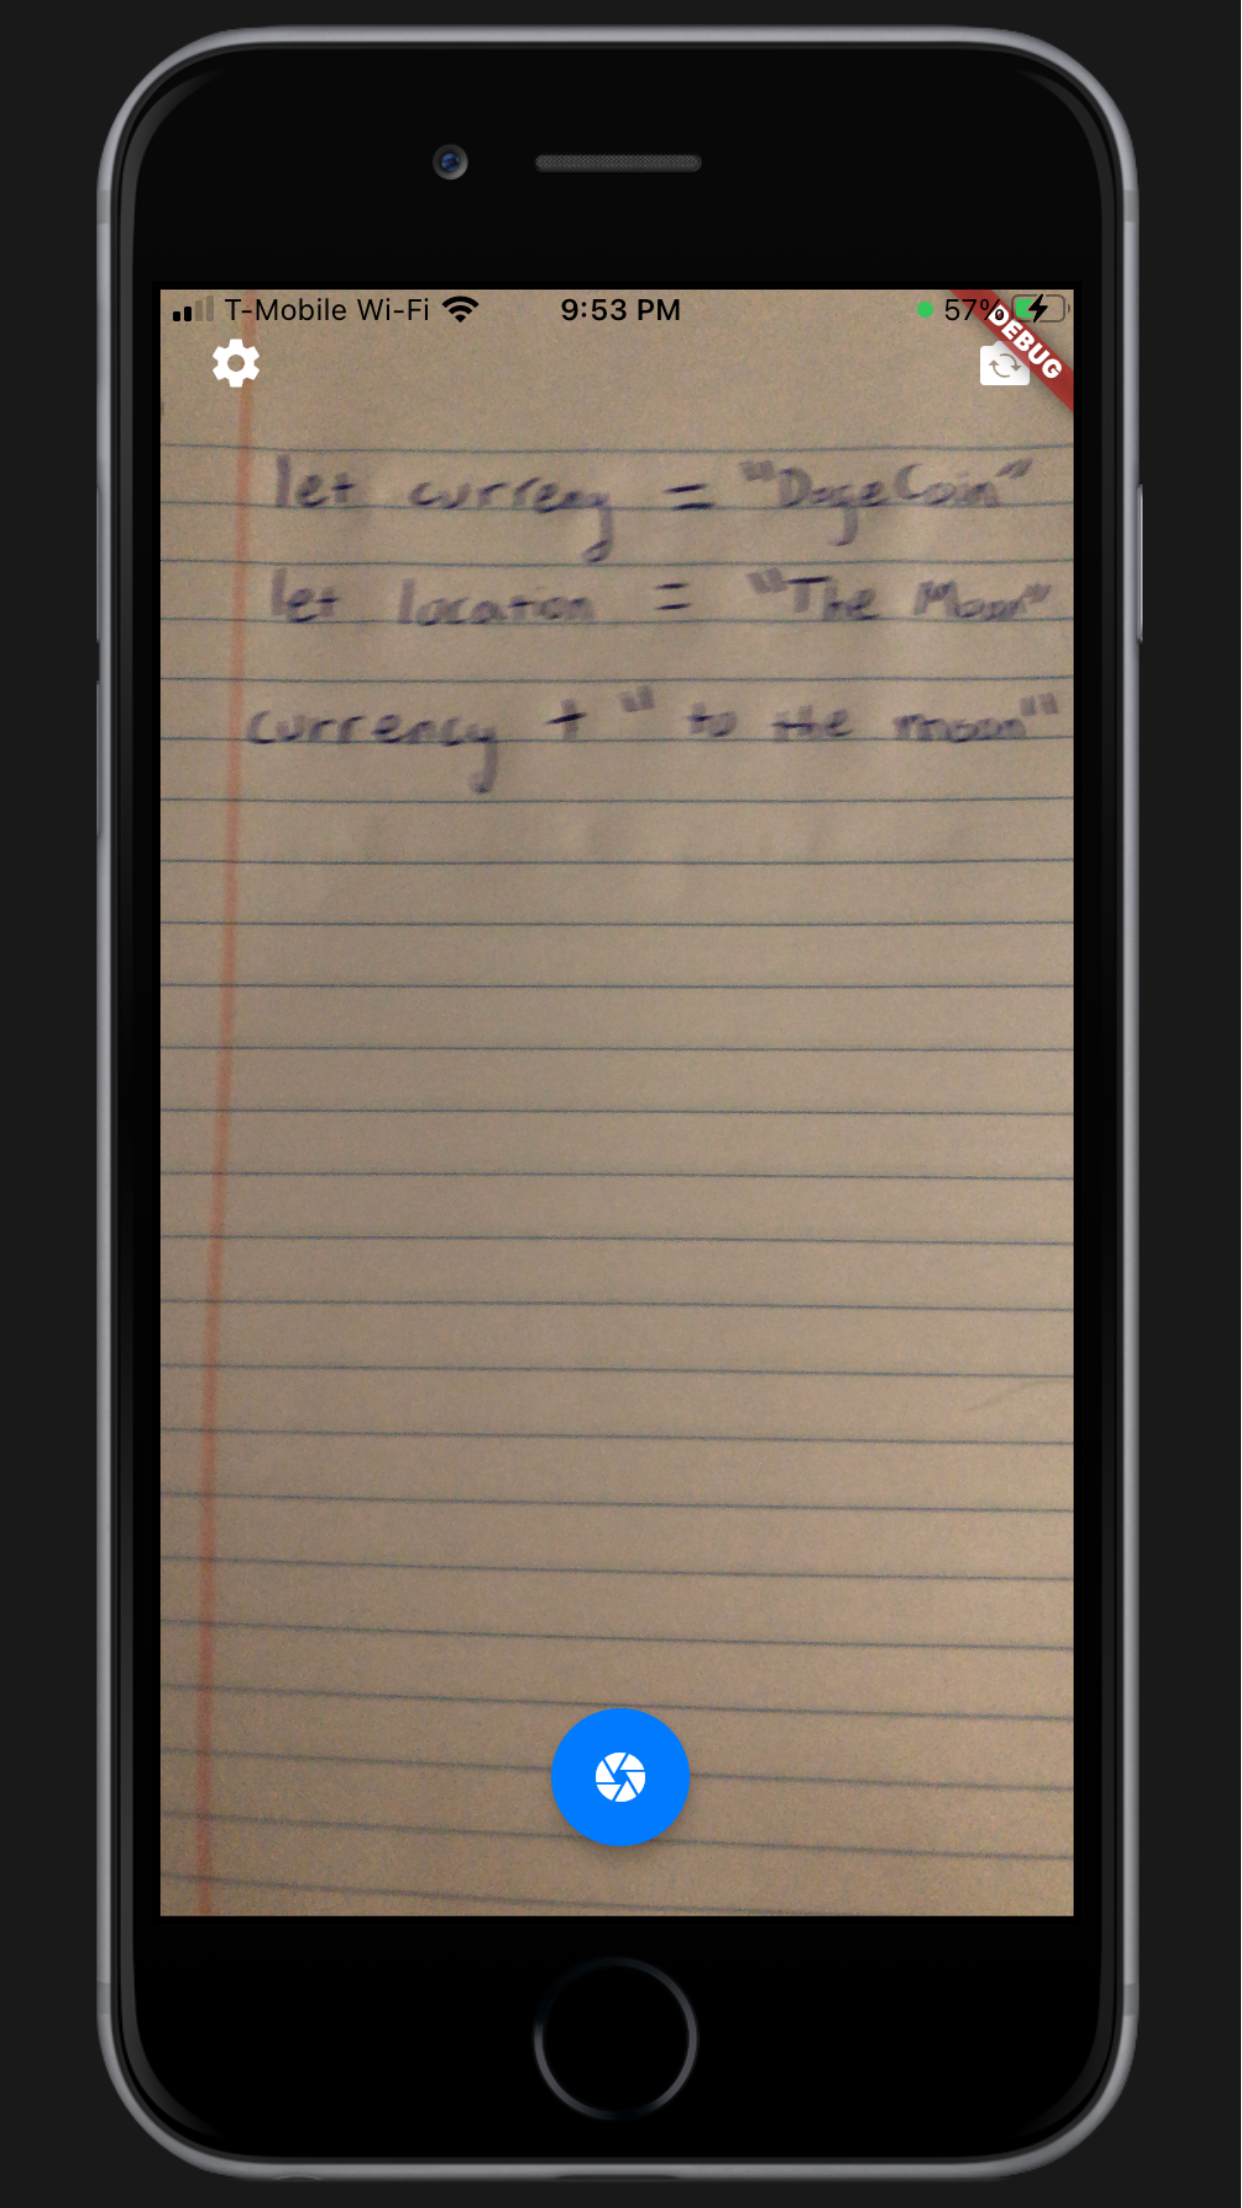 T-Mobile Wi-Fi 9:53 PM 57%
DEBUG
let curreny = "DogeCoin"
let location = "The Moon"
currency + " to the moon"